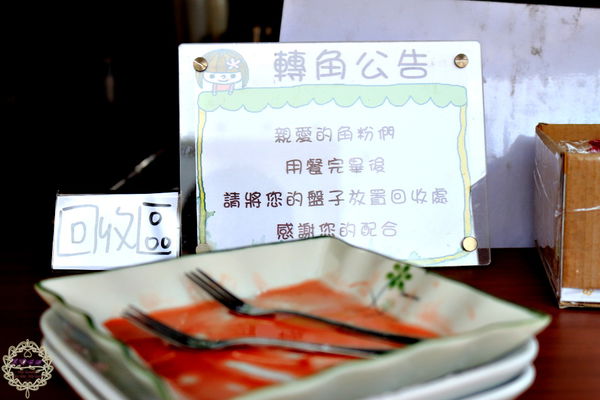 轉角公告
親愛的角粉們
用餐完畢後
請將您的盤子放置回收處
感謝您的配合
回收區